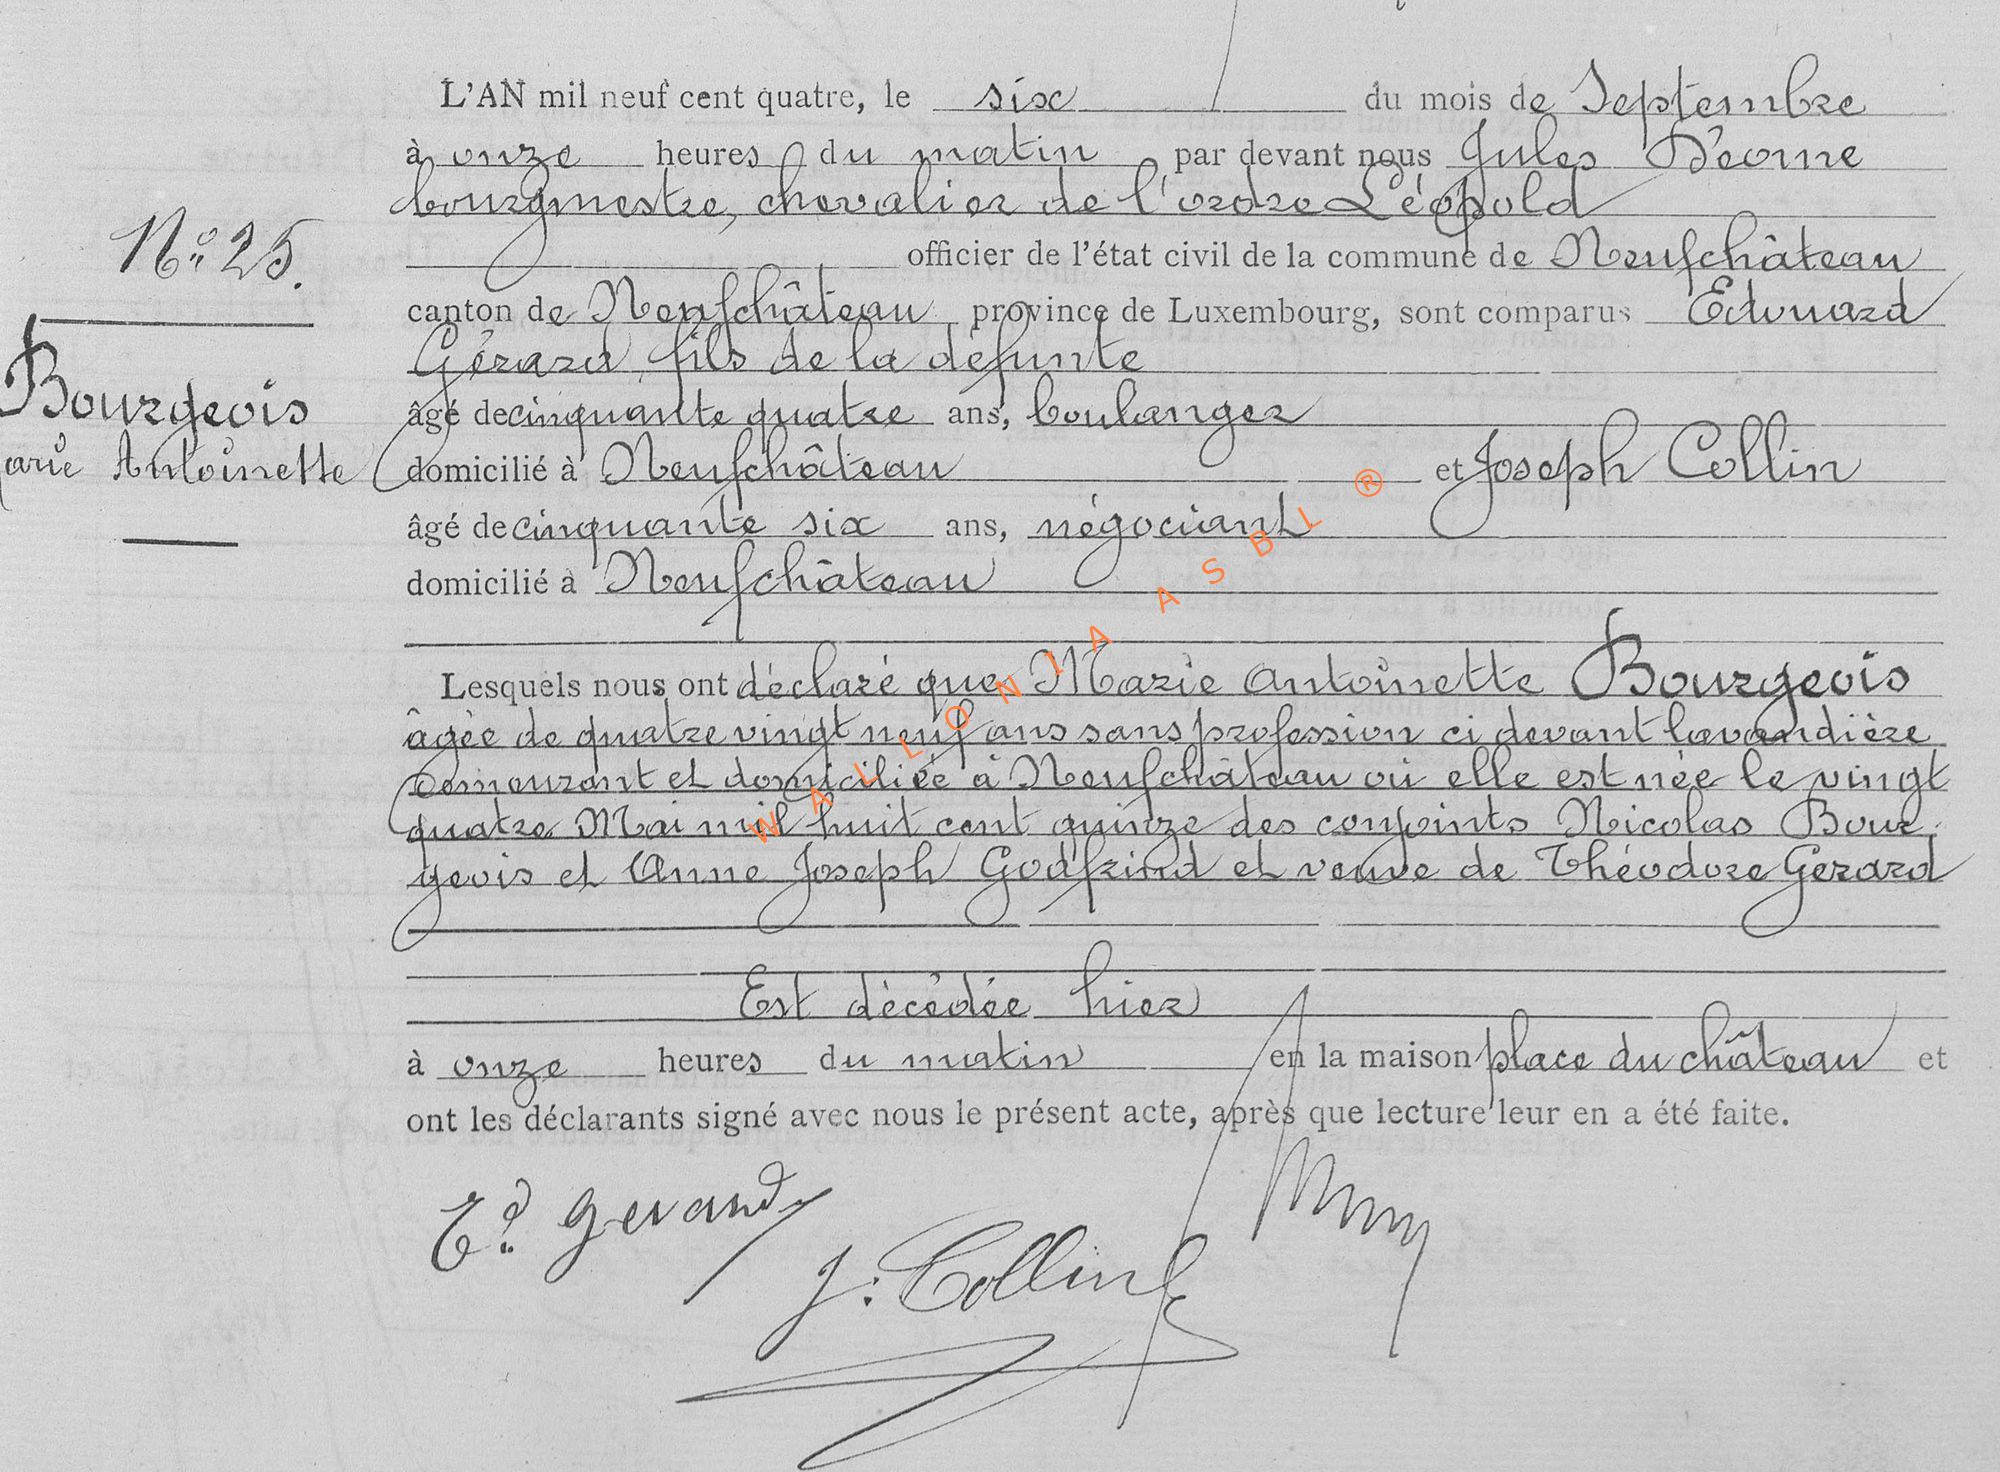 L'AN mil neuf cent quatre, le six du mois de Septembre
à onze heures du matin par devant nous Jules Déome
bourgmestre, chevalier de l'ordre Léopold
N° 25.
officier de l'état civil de la commune de Neufchâteau
canton de Neufchâteau province de Luxembourg, sont comparus Edouard
Gérard, fils de la défunte
Bourgeois
arie Antoinette
âgé de cinquante quatre ans, boulanger
domicilié à Neufchâteau et Joseph Collin
âgé de cinquante six ans, négociant
domicilié à Neufchâteau
Lesquels nous ont déclaré que Marie Antoinette Bourgeois
âgée de quatre vingt neuf ans sans profession ci devant lavandière
demeurant et domiciliée à Neufchâteau où elle est née le vingt
quatre Mai mil huit cent quinze des conjoints Nicolas Bour
geois et Anne Joseph Godfrind et veuve de Théodore Gerard
Est décédée hier
à onze heures du matin en la maison place du château et
ont les déclarants signé avec nous le présent acte, après que lecture leur en a été faite.
Ed. Gerard
J. Collin
WALLONIA ASBL ®